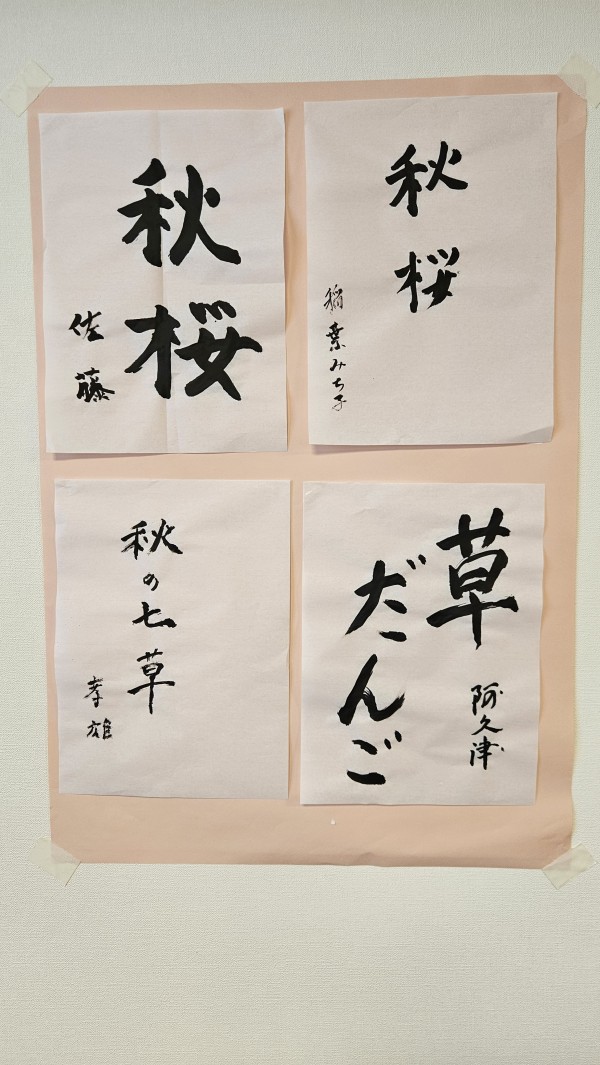 秋桜
佐藤
秋桜
稲葉みち子
秋の七草
孝雄
草
だんご
阿久津